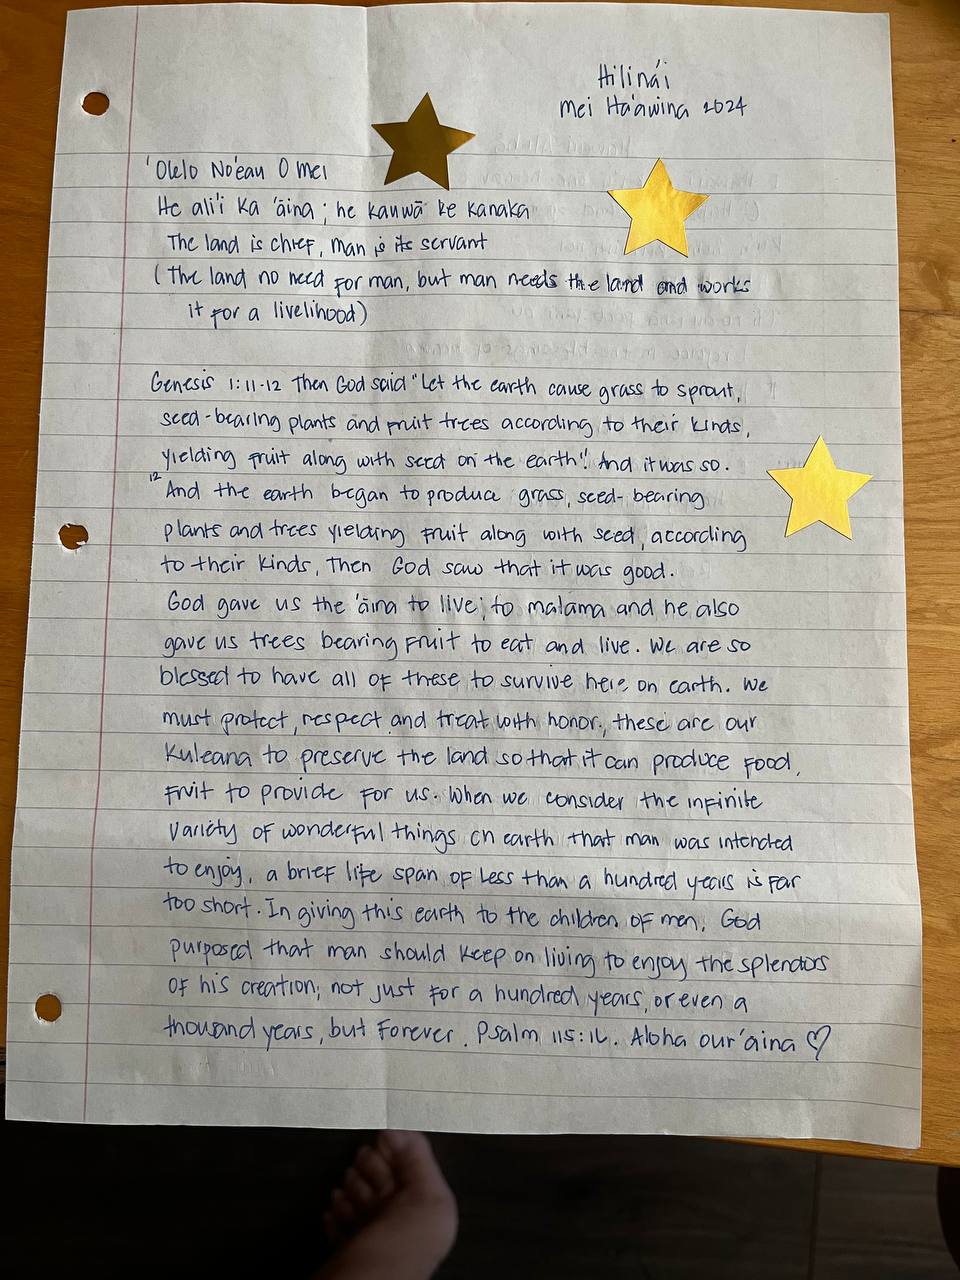 Hiliná'i
Mei Ha'awina 2024
'Olelo No'eau O Mei
He ali'i ka 'āina; he kauwā ke kanaka
The land is chief, man is its servant
(The land no need for man, but man needs the land and works
it for a livelihood)
Genesis 1:11-12 Then God said "Let the earth cause grass to sprout,
seed-bearing plants and fruit trees according to their kinds,
yielding fruit along with seed on the earth". And it was so.
12 And the earth began to produce grass, seed-bearing
plants and trees yielding fruit along with seed, according
to their kinds, Then God saw that it was good.
God gave us the 'āina to live; to malama and he also
gave us trees bearing fruit to eat and live. We are so
blessed to have all of these to survive here on earth. We
must protect, respect and treat with honor, these are our
Kuleana to preserve the land so that it can produce food,
fruit to provide for us. When we consider the infinite
variety of wonderful things on earth that man was intended
to enjoy, a brief life span of less than a hundred years is far
too short. In giving this earth to the children of men, God
purposed that man should keep on living to enjoy the splendors
of his creation; not just for a hundred years, or even a
thousand years, but Forever. Psalm 115:16. Aloha our 'aina ♡